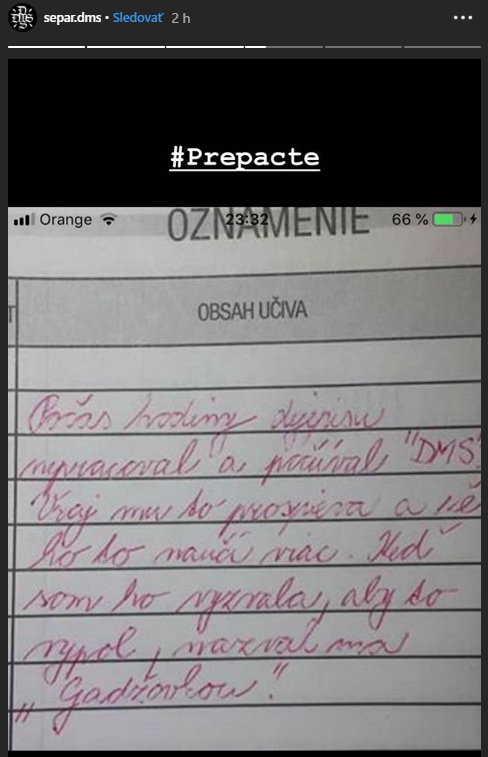 separ.dms • Sledovať 2 h
#Prepacte
Orange 23:32 66 %
OZNAMENIE
OBSAH UČIVA
Počas hodiny dejepisu
nepracoval a počúval "DMS"
Vraj mu to prospieva a že
ho to naučí viac. Keď
som ho vyzvala, aby to
vypol, nazval ma
„Gadžovkou".